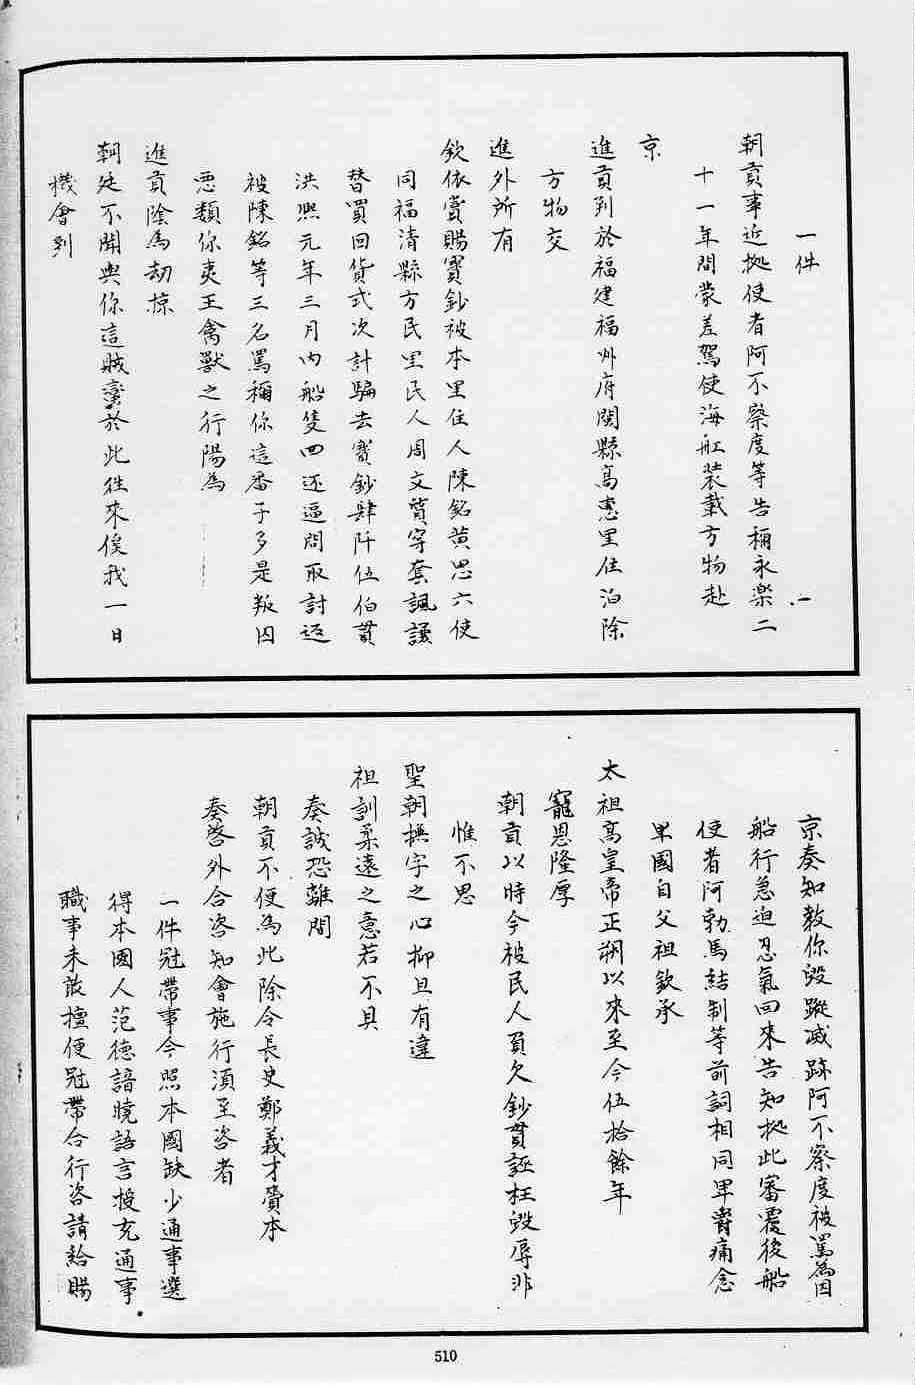 一件
朝貢事近拠使者阿不察度等告稱永楽二
十一年間蒙差駕使海舡装載方物赴
京
進貢到於福建福州府閩縣高惠里住泊除
方物交
進外所有
欽依賞賜寳鈔被本里住人陳銘黄思六使
同福清縣方民里民人周文質穿套諷議
替買回貨式次計騙去寳鈔肆阡伍伯貫
洪熙元年三月内船隻四还逼問取討返
被陳銘等三名罵稱你這番子多是叛囚
悪類你夷王禽獸之行陽為
進貢陰為劫掠
朝廷不開與你這賊蠻於此往來俟我一日
機會到
京奏知教你毀蹤滅跡阿不察度被罵為因
船行急迫忍氣回來告知拠此審覆後船
使者阿勃馬結制等前詞相同卑爵痛念
卑國自父祖欽承
太祖高皇帝正朔以來至今伍拾餘年
寵恩隆厚
朝貢以時今被民人負欠鈔貫誣枉毀辱非
惟不思
聖朝撫字之心抑且有違
祖訓柔遠之意若不具
奏誠恐離間
朝貢不便為此除令長史鄭義才賫本
奏啓外合咨知會施行湏至咨者
一件冠帶事今照本國缺少通事選
得本國人范徳諳曉語言授充通事
職事未敢擅便冠帶合行咨請給賜
510